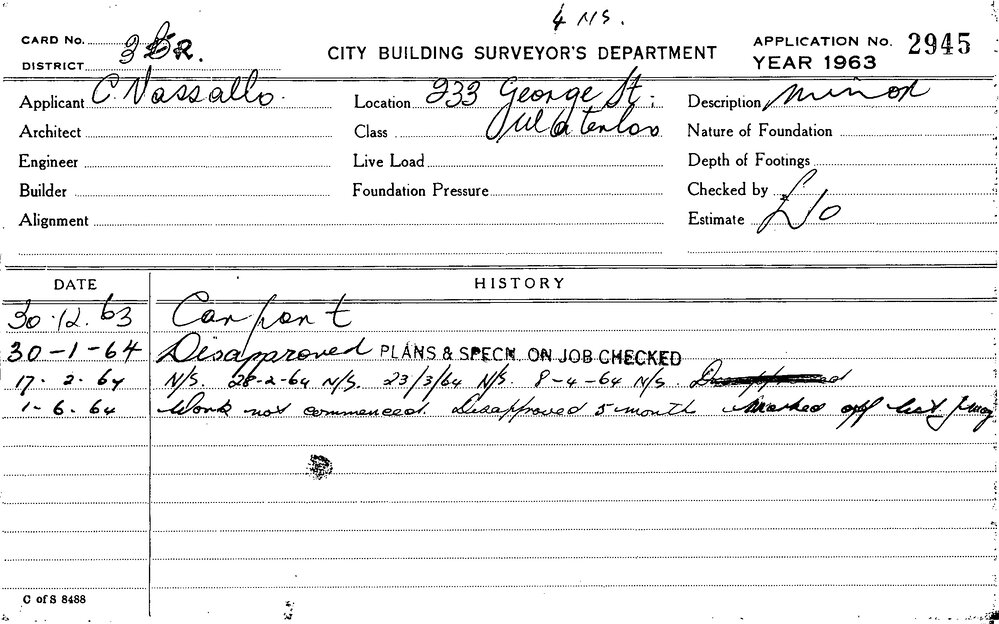 4 N/S.
CARD No.
DISTRICT 3 R.
CITY BUILDING SURVEYOR'S DEPARTMENT
APPLICATION No. 2945
YEAR 1963
Applicant C. Vassallo. Location 233 George St. Description Minor
Architect Class Waterloo Nature of Foundation
Engineer Live Load Depth of Footings
Builder Foundation Pressure Checked by
Alignment Estimate £10
DATE HISTORY
30.12.63 Carport
30-1-64 Disapproved PLANS & SPECN. ON JOB CHECKED
17. 2. 64 N/S. 28-2-64 N/S. 23/3/64 N/S. 8-4-64 N/S.
1-6.64 Work not commenced. Disapproved 5 month Marked off list
C of S 8488